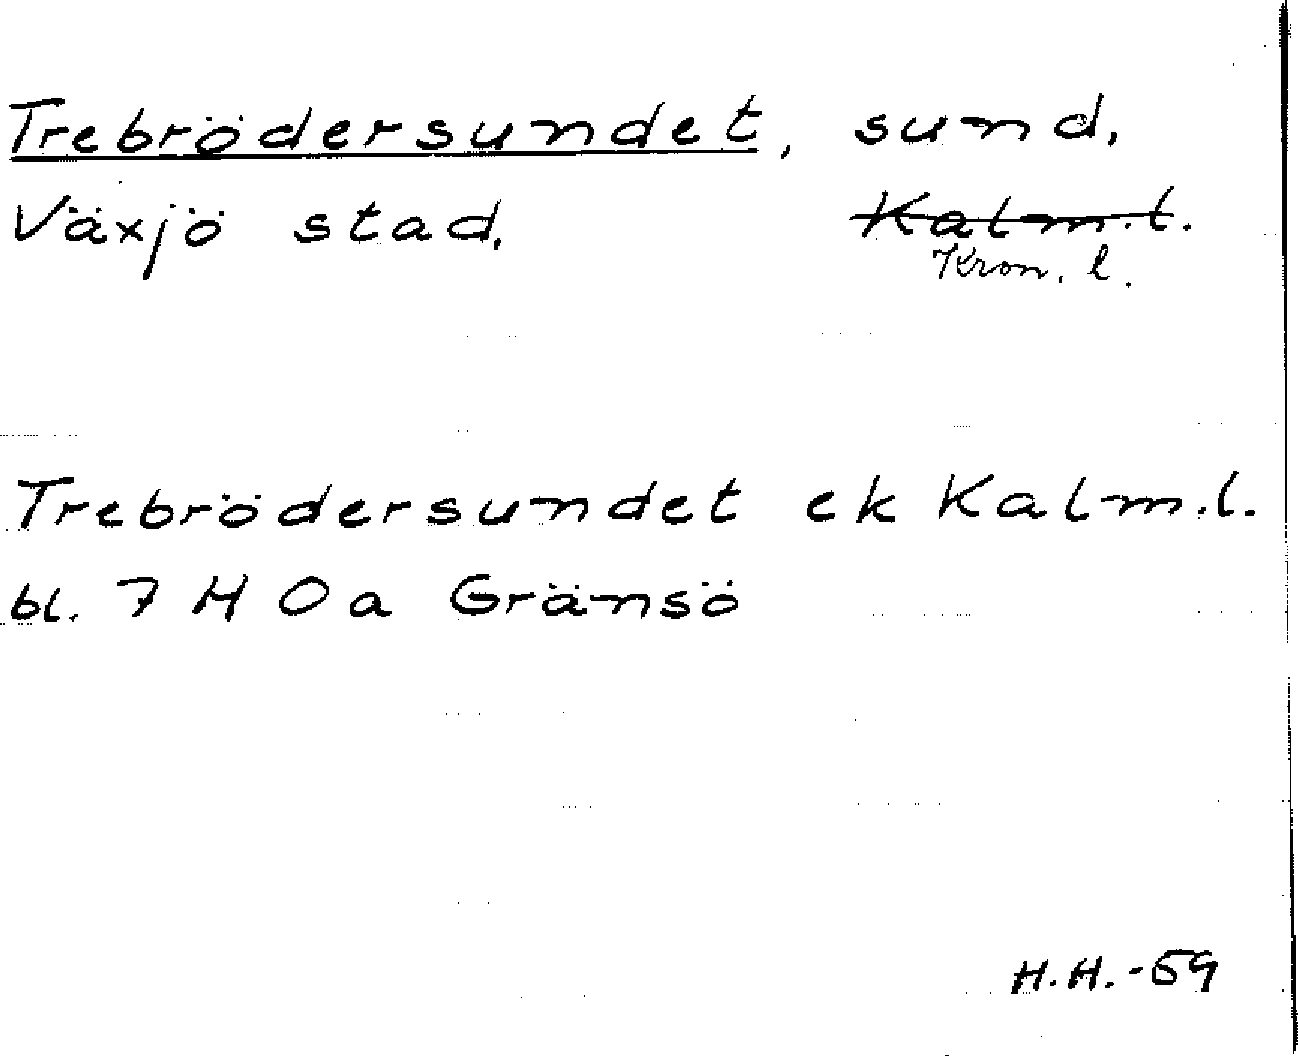 Trebrödersundet, sund,
Växjö stad, Kalm.l.
Kron. l.
Trebrödersundet ek Kalm.l.
bl. 7 H 0 a Gränsö
H.H.-59